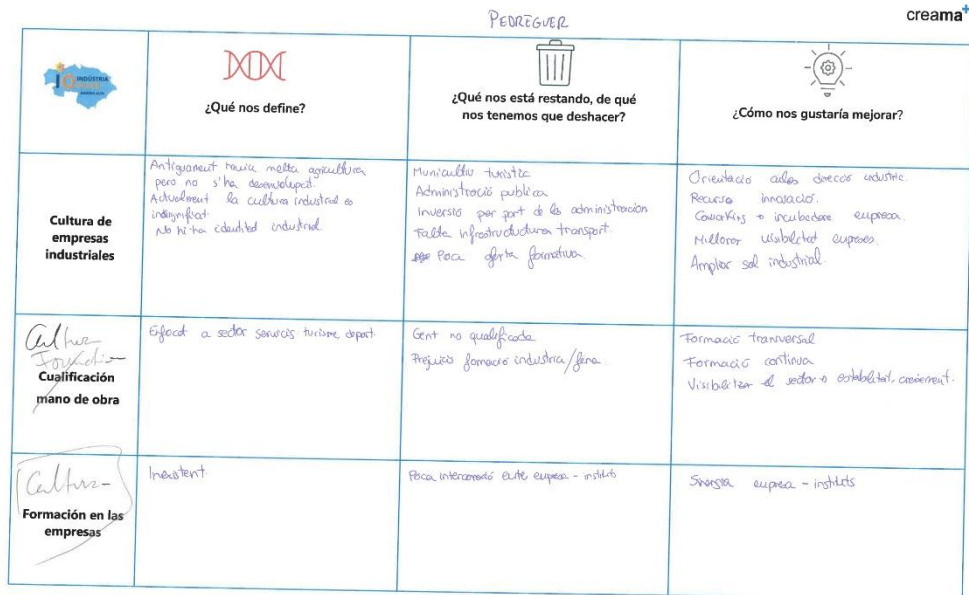 PEDREGUER
creama+
INDÚSTRIA
MARINA ALTA
¿Qué nos define?
¿Qué nos está restando, de qué
nos tenemos que deshacer?
¿Cómo nos gustaría mejorar?
Cultura de
empresas
industriales
Antiguament havia molta agricultura
pero no s'ha desenvolupat.
Actualment la cultura industrial es
insignificat.
No hi ha identitat industrial
Municultiu turistic
Administració publica
Inversió per part de les administracion
Falta infrastructura transport.
Poca oferta formativa.
Orientació cicles direcció industria.
Recursos innovació.
Coworkings o incubadora empresa.
Millorar visibilitat empreses.
Ampliar sol industrial.
Cultura
Formación
Cualificación
mano de obra
Enfocat a sector serveis turisme deport.
Gent no qualificada
Prejuicis formació industria/feina.
Formació tranversal
Formació continua
Visibilitzar el sector estabilitat, creixement.
Cultura
Formación en las
empresas
Inexistent
Poca interconnexió entre empresa - instituts
Sinergia empresa - instituts